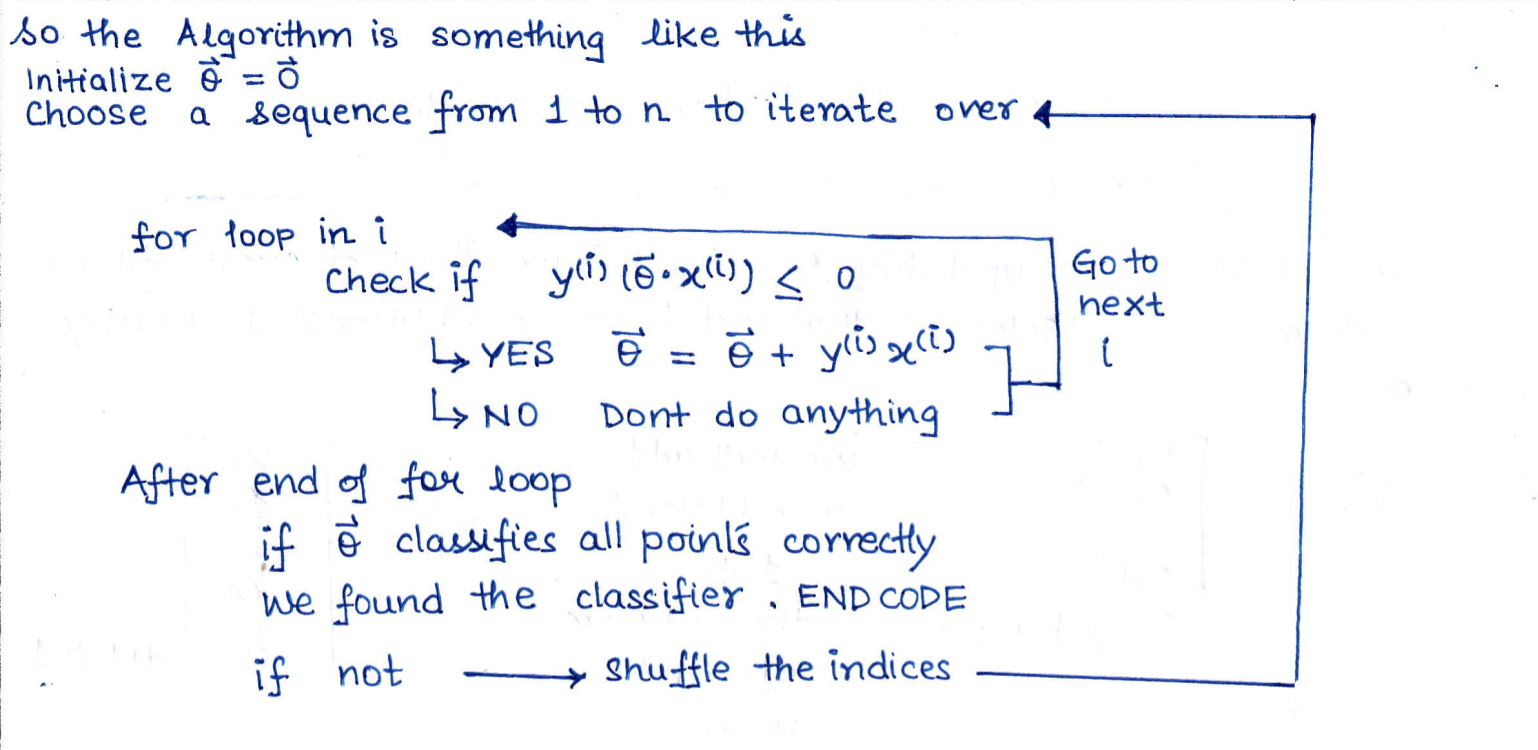 So the Algorithm is something like this
Initialize θ⃗ = 0⃗
Choose a sequence from 1 to n to iterate over
for loop in i
Check if y⁽ⁱ⁾ (θ̄ · x⁽ⁱ⁾) ≤ 0
Go to
next
i
↳ YES θ⃗ = θ⃗ + y⁽ⁱ⁾ x⁽ⁱ⁾
↳ NO Dont do anything
After end of for loop
if θ⃗ classifies all points correctly
We found the classifier . END CODE
if not → shuffle the indices